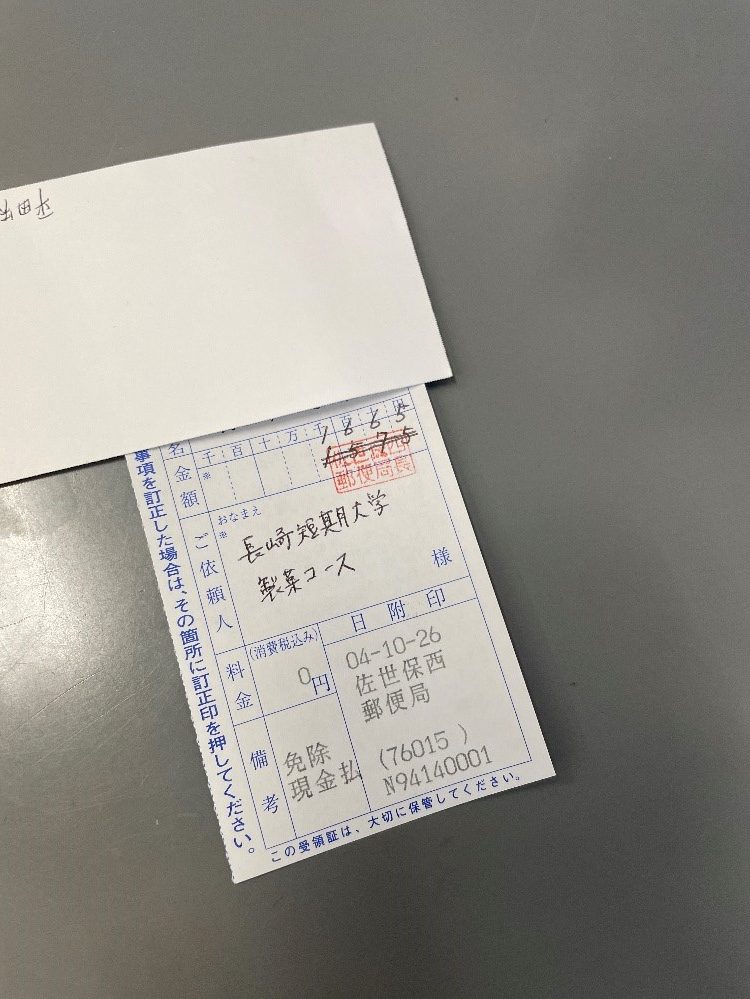 平田
千百十万千百十円
1865
1575
名
金額
※
佐世保西
郵便局長
おなまえ
※
ご依頼人
長崎短期大学
製菓コース
様
料金
(消費税込み)
0円
日附印
04-10-26
佐世保西
郵便局
(76015 )
N94140001
備考
免除
現金払
事項を訂正した場合は、その箇所に訂正印を押してください。
この受領証は、大切に保管してください。